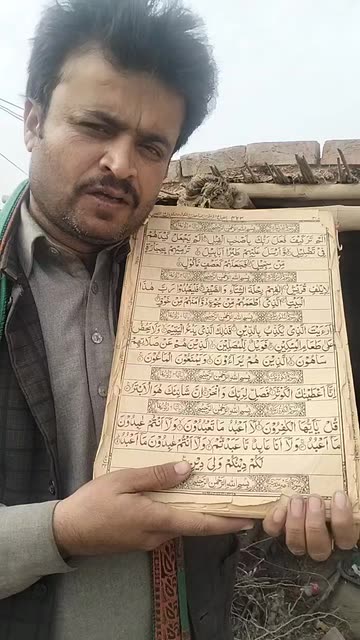 اَلَمْ تَرَ كَيْفَ فَعَلَ رَبُّكَ بِاَصْحٰبِ الْفِيْلِ اَلَمْ يَجْعَلْ كَيْدَهُمْ
فِيْ تَضْلِيْلٍ وَّاَرْسَلَ عَلَيْهِمْ طَيْرًا اَبَابِيْلَ تَرْمِيْهِمْ بِحِجَارَةٍ
مِّنْ سِجِّيْلٍ فَجَعَلَهُمْ كَعَصْفٍ مَّاْكُوْلٍ
لِاِيْلٰفِ قُرَيْشٍ اٖلٰفِهِمْ رِحْلَةَ الشِّتَآءِ وَالصَّيْفِ فَلْيَعْبُدُوْا رَبَّ هٰذَا
الْبَيْتِ الَّذِيْٓ اَطْعَمَهُمْ مِّنْ جُوْعٍ وَّاٰمَنَهُمْ مِّنْ خَوْفٍ
بِسْمِ اللّٰهِ الرَّحْمٰنِ الرَّحِيْمِ
اَرَءَيْتَ الَّذِيْ يُكَذِّبُ بِالدِّيْنِ فَذٰلِكَ الَّذِيْ يَدُعُّ الْيَتِيْمَ وَلَا يَحُضُّ
عَلٰى طَعَامِ الْمِسْكِيْنِ فَوَيْلٌ لِّلْمُصَلِّيْنَ الَّذِيْنَ هُمْ عَنْ صَلَاتِهِمْ
سَاهُوْنَ الَّذِيْنَ هُمْ يُرَآءُوْنَ وَيَمْنَعُوْنَ الْمَاعُوْنَ
بِسْمِ اللّٰهِ الرَّحْمٰنِ الرَّحِيْمِ
اِنَّآ اَعْطَيْنٰكَ الْكَوْثَرَ فَصَلِّ لِرَبِّكَ وَانْحَرْ اِنَّ شَانِئَكَ هُوَ الْاَبْتَرُ
بِسْمِ اللّٰهِ الرَّحْمٰنِ الرَّحِيْمِ
قُلْ يٰٓاَيُّهَا الْكٰفِرُوْنَ لَآ اَعْبُدُ مَا تَعْبُدُوْنَ وَلَآ اَنْتُمْ عٰبِدُوْنَ
مَآ اَعْبُدُ وَلَآ اَنَا عَابِدٌ مَّا عَبَدْتُّمْ وَلَآ اَنْتُمْ عٰبِدُوْنَ مَآ اَعْبُدُ
لَكُمْ دِيْنُكُمْ وَلِيَ دِيْنِ
بِسْمِ اللّٰهِ الرَّحْمٰنِ الرَّحِيْمِ